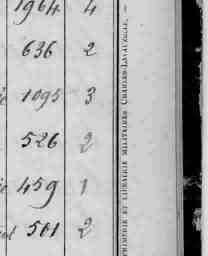 1964 4
636 2
1095 3
526 2
459 1
501 2
IMPRIMERIE ET LIBRAIRIE MILITAIRES CHARLES-LAVAUZELLE.